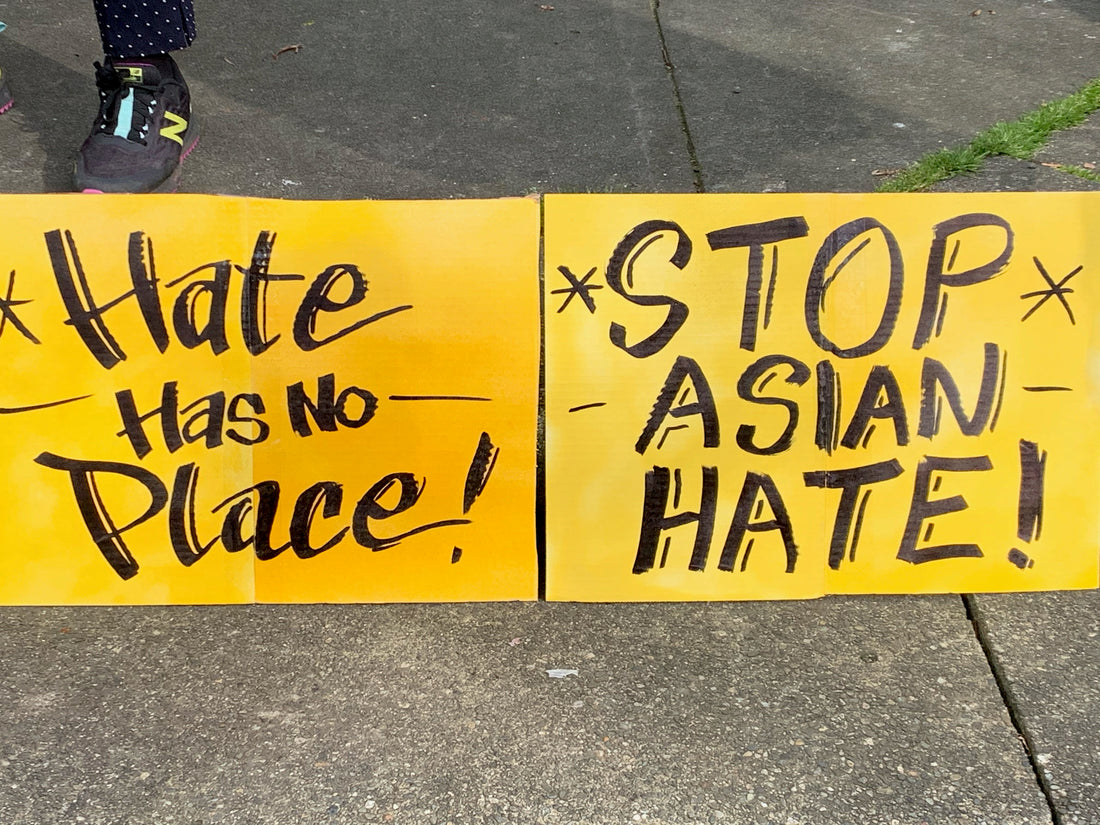 *Hate
- Has No -
Place!
*STOP*
- ASIAN -
HATE!
N